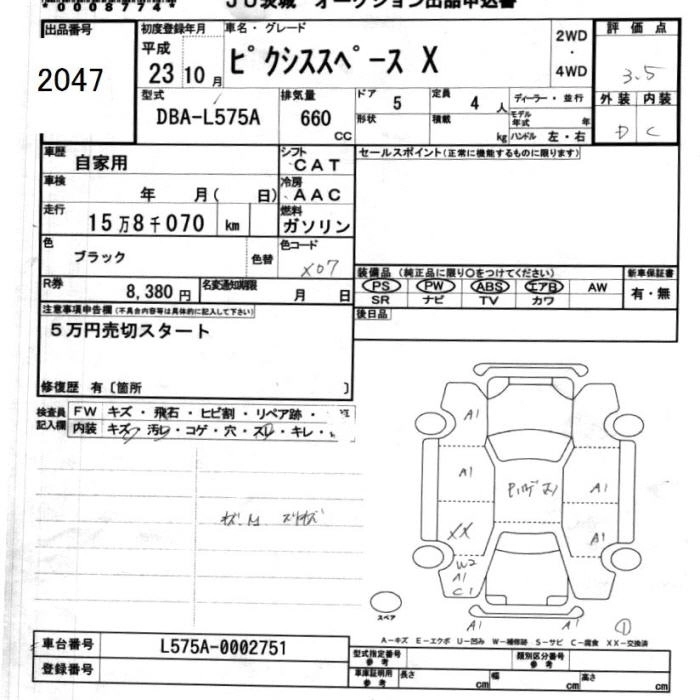 *00087744*
JU茨城 オークション出品申込書
出品番号 初度登録年月 車名・グレード 評価点
2047 平成 23 10月 ピクシススペース X 2WD・4WD 3.5
型式 排気量 ドア 定員 ディーラー・並行 外装 内装
DBA-L575A 660 CC 5 4人 モデル年式 年 D C
形状 積載 kg ハンドル 左・右
車歴 自家用 シフト CAT セールスポイント(正常に機能するものに限ります)
車検 年 月( 日) 冷房 AAC
走行 15万8千070 km 燃料 ガソリン
色 ブラック 色替 色コード X07
装備品 (純正品に限り〇をつけてください) 新車保証書
PS PW ABS エアB AW 有・無
SR ナビ TV カワ
R券 8,380円 名変通知期限 月 日
後日品
注意事項申告欄(不具合内容等は具体的に記入して下さい)
5万円売切スタート
修復歴 有〔箇所 〕
検査員記入欄 FW キズ・飛石・ヒビ割・リペア跡・
内装 キズ・汚レ・コゲ・穴・スレ・キレ・
A1
A1 A1
XX A1
W2
A1
C1
A1 A1 ①
スペア
A-キズ E-エクボ U-凹み W-補修跡 S-サビ C-腐食 XX-交換済
車台番号 L575A-0002751
登録番号
型式指定番号 参考 類別区分番号 参考
車庫証明用 参考 長さ cm 幅 cm 高さ cm